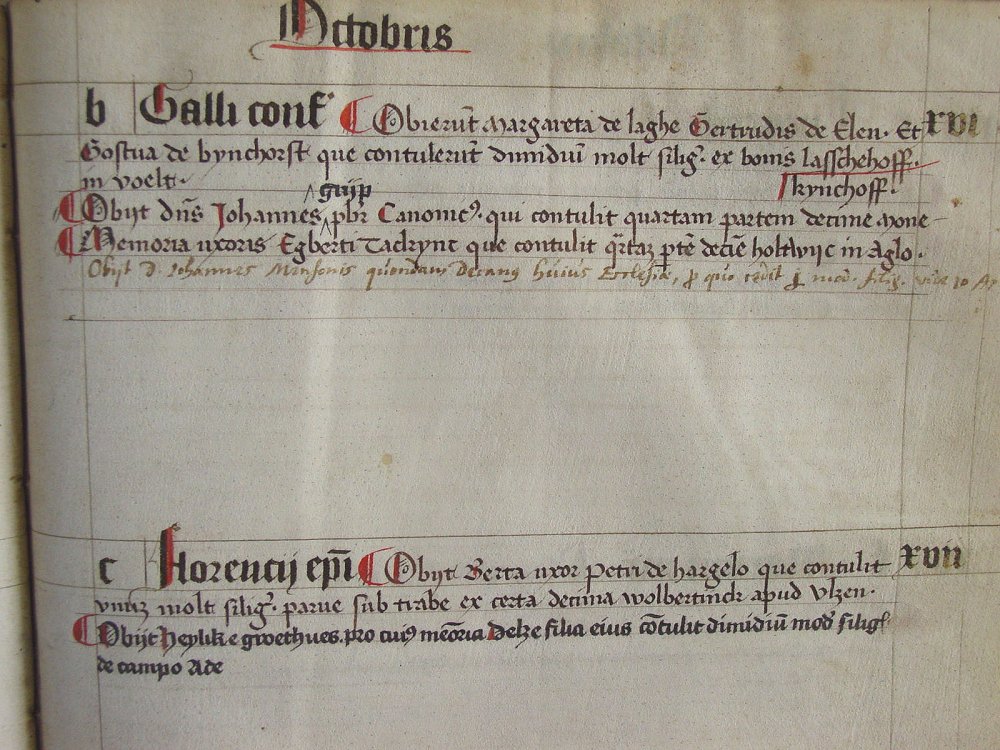 Octobris
b Galli conf̃ Obierũt Margareta de laghe Gertrudis de Elen. Et XVI
Gostua de bynchorst que contulerũt dimidiũ molt silig̃. ex bonis lasschehoff.
in voelt. kynchoff.
grijp
Obijt dñs Johannes pbr̃ Canonic9. qui contulit quartam partem decime
Memoria uxoris Egberti que contulit q̃rtaz ptẽ deciẽ holtwijc in Aglo.
Obijt D. Johannes quondam Decanus huius Ecclesiæ, silig.
c Florencij epĩ Obijt Berta uxor Petri de hargelo que contulit XVII
vnuz molt silig̃. parue sub trabe ex certa decima apud Vlzen.
Obijt heylike groethues. pro cui9 meõria Delze filia eius cõtulit dimidiũ mod̃ silig̃
de campo Ade